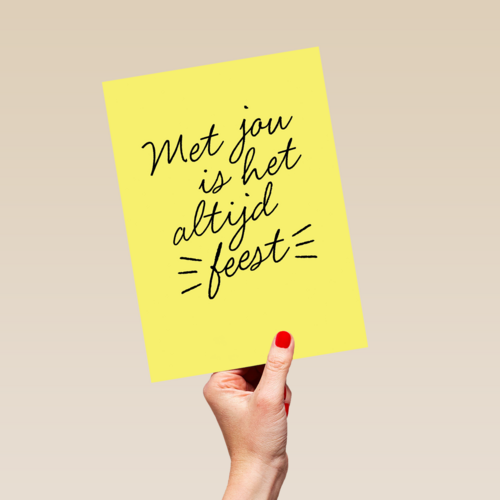 Met jou
is het
altijd
feest